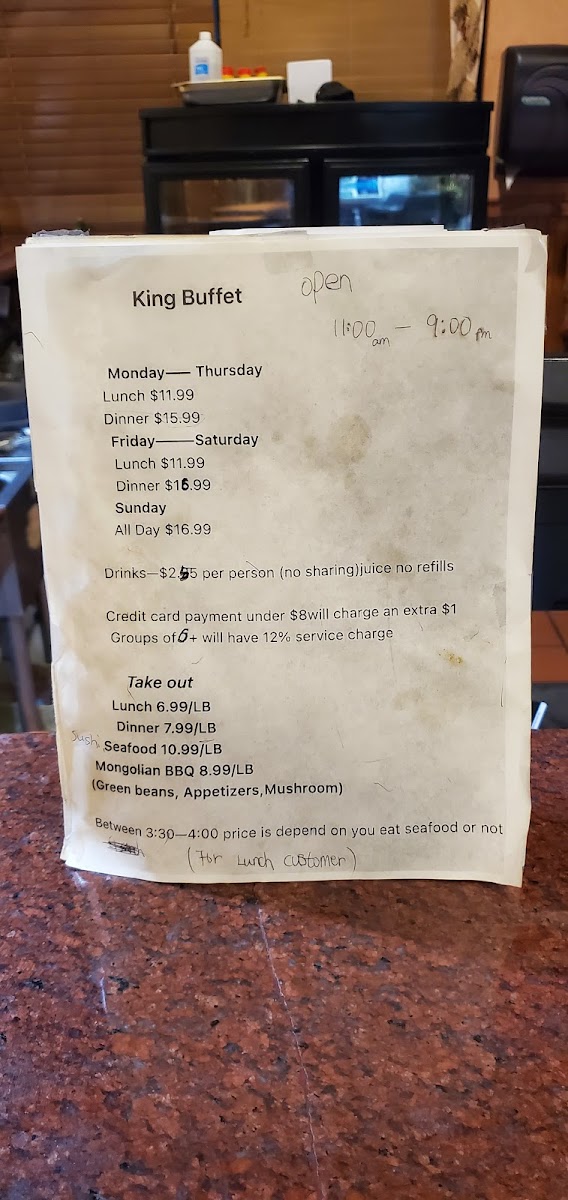 King Buffet open
11:00 am - 9:00 pm
Monday— Thursday
Lunch $11.99
Dinner $15.99
Friday——Saturday
Lunch $11.99
Dinner $16.99
Sunday
All Day $16.99
Drinks—$2.55 per person (no sharing)juice no refills
Credit card payment under $8will charge an extra $1
Groups of 6+ will have 12% service charge
Take out
Lunch 6.99/LB
Dinner 7.99/LB
Sushi Seafood 10.99/LB
Mongolian BBQ 8.99/LB
(Green beans, Appetizers,Mushroom)
Between 3:30—4:00 price is depend on you eat seafood or not
(For Lunch customer)